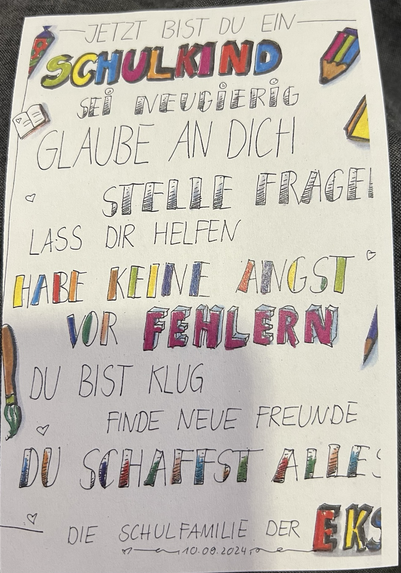 JETZT BIST DU EIN
SCHULKIND
SEI NEUGIERIG
GLAUBE AN DICH
STELLE FRAGEN
LASS DIR HELFEN
HABE KEINE ANGST
VOR FEHLERN
DU BIST KLUG
FINDE NEUE FREUNDE
DU SCHAFFST ALLES
DIE SCHULFAMILIE DER EKS
10.09.2024